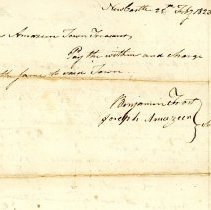 NewCastle 28th Feby 1823
Amazeen Town Treasurer
Pay the within and charge
the same to said Town
Benjamin Frost
Joseph Amazeen